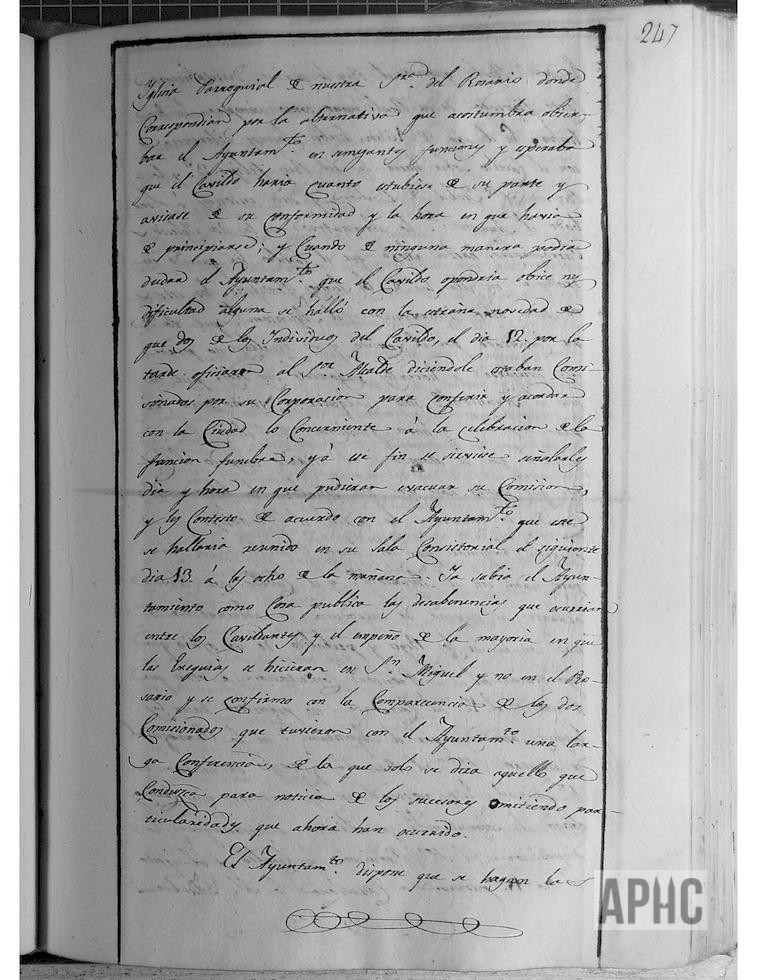 247
Iglesia Parroquial de nuestra Sra. del Rosario donde
Correspondian por la alternativa que acostumbra obser-
bar el Ayuntamto. en semejantes funciones y esperaba
que el Cavildo haria cuanto estubiese de su parte y
aviase de su conformidad y la hora en que havia
de principiarse; y Cuando de ninguna manera podia
dudar el Ayuntamto. que el Cavildo opondria obice ny
dificultad alguna se halló con la extraña novedad de
que dos de los Individuos del Cavildo, el dia 12. por la
tarde oficiaron al Sor. Alcalde diciendole estaban Comi-
sionados por su Corporacion para conferir y acordar
con la Ciudad lo Concerniente á la celebracion de la
funcion funebre, y á ese fin se sirviese señalarles
dia y hora en que pudieran evacuar su Comision,
y les Contesto de acuerdo con el Ayuntamto. que este
se hallaria reunido en su Sala Consistorial el siguiente
dia 13. á las ocho de la mañana. Ya sabia el Ayun-
tamiento como Cosa publica las desabenencias que ocurrian
entre los Cavildantes y el empeño de la mayoria en que
las Exequias se hicieran en Sn. Miguel y no en el Ro-
sario y se confirmo con la Comparecencia de los dos
Comicionados que tuvieron con el Ayuntamto. una lar-
ga Conferencia, de la que solo se dira aquello que
Conduzca para noticia de los sucesores omitiendo par-
ticularidades que ahora han ocurrido.
El Ayuntamto. dispone que se hagan las
APHC